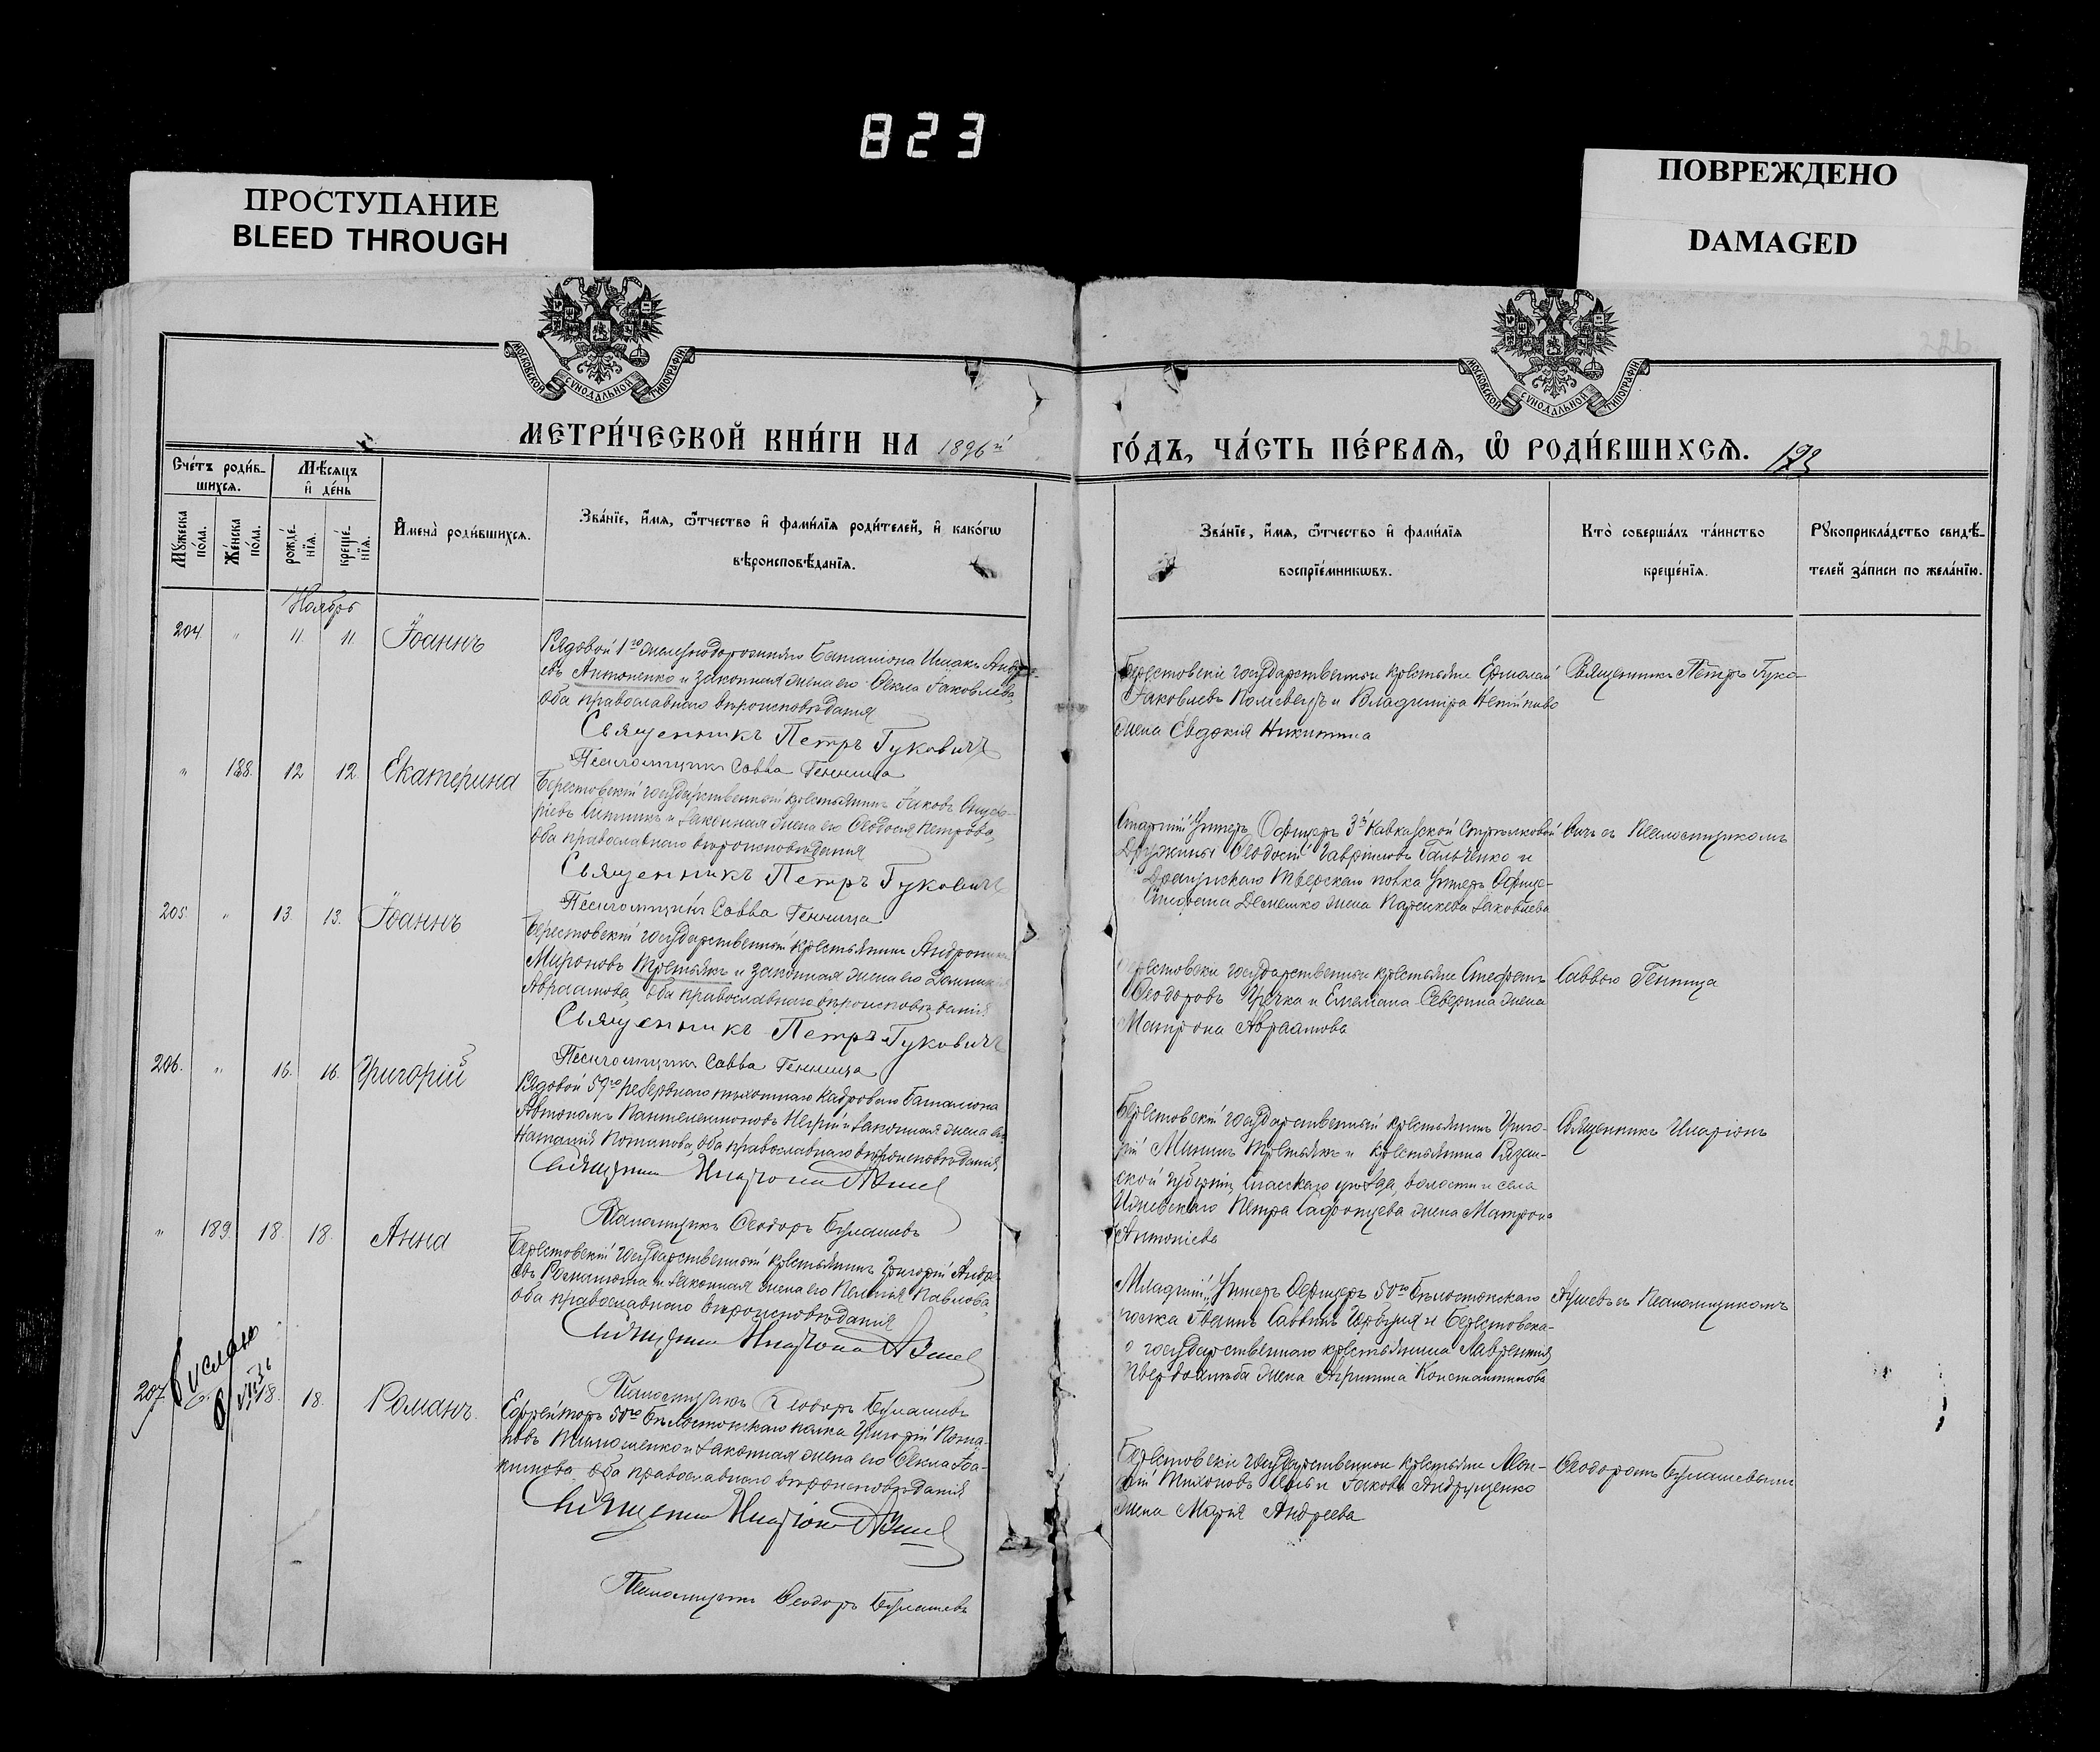 823
ПРОСТУПАНИЕ
BLEED THROUGH
ПОВРЕЖДЕНО
DAMAGED
МОСКОВСКОЙ СУНОДАЛЬНОЙ ТИПОГРАФІИ
МОСКОВСКОЙ СУНОДАЛЬНОЙ ТИПОГРАФІИ
МЕТРИ́ЧЕСКОЙ КНИ́ГИ НА 1896й
ГО́ДЪ, ЧА́СТЬ ПЕ́РВАѦ, Ѡ РОДИ́ВШИХСѦ.
Сче́тъ роди́в-
шихсѧ.
Мѣ́сѧцъ
и де́нь
Мꙋ́жеска
по́ла.
Же́нска
по́ла.
рожде́-
нїѧ.
креще́-
нїѧ.
И҆мена̀ роди́вшихсѧ.
Зва́нїе, и҆́мѧ, ѻ҆́тчество и҆ фами́лїѧ роди́телей, и҆ како́гѡ
вѣроисповѣ́данїѧ.
Зва́нїе, и҆́мѧ, ѻ҆́тчество и҆ фами́лїѧ
воспрїе́мникѡвъ.
Кто̀ соверша́лъ та́инство
креще́нїѧ.
Рꙋкоприкла́дство свидѣ́-
телей за́писи по жела́нїю.
Ноябрь
204. " 11. 11 Іоаннъ
Рядовой 1го железнодорожнаго Баталіона Исаакъ Андре-
евъ Антоненко и законная жена его Ѳекла Іаковлева,
оба православнаго вѣроисповѣданія
Священникъ Петръ Гуковичъ
Псаломщикъ Савва Геннища
Берестовскіе государственные крестьяне Ермолай
Іаковлевъ и Владиміра
жена Евдокія Никитина
Священникъ Петръ Гуко-
" 188. 12 12. Екатерина
Берестовскій государственный крестьянинъ Іаковъ
и законная жена его Ѳеодосія Петрова,
оба православнаго вѣроисповѣданія
Священникъ Петръ Гуковичъ
Псаломщикъ Савва Геннища
Старшій Унтеръ Офицеръ 3й Кавказской Стрѣлковой
Дружины Ѳеодосій Гавріиловъ Гальченко и
Драгунскаго Тверскаго полка Унтеръ Офице-
Стефана Демешко жена Параскева Іаковлева
вичъ съ Псаломщикомъ
205. " 13. 13. Іоаннъ
Берестовскій государственный крестьянинъ Андроникъ
Мироновъ Третьякъ и законная жена его
Авраамова, оба православнаго вѣроисповѣданія
Священникъ Петръ Гуковичъ
Псаломщикъ Савва Геннища
Берестовскіе государственные крестьяне Стефанъ
Ѳеодоровъ и Емеліана Северина жена
Матрона Авраамова
Саввою Геннища
206. " 16. 16. Григорій
Рядовой 59го резервнаго пѣхотнаго кадроваго Баталіона
Автономъ Пантелеимоновъ и законная жена его
Наталія Потапова, оба православнаго вѣроисповѣданія
Священникъ Иларіонъ
Псаломщикъ Ѳеодоръ Булашевъ
Берестовскій государственный крестьянинъ Григо-
рій Мининъ Третьякъ и крестьянина Рязан-
ской губерніи, Спасскаго уѣзда, волости и села
Ижевскаго Петра Сафонцева жена Матрона
Антоніева
Священникъ Иларіонъ
" 189. 18. 18. Анна
Берестовскій государственный крестьянинъ Григорій Андре-
евъ Романюта и законная жена его Пелагія Павлова,
оба православнаго вѣроисповѣданія
Священникъ Иларіонъ
Псаломщикъ Ѳеодоръ Булашевъ
Младшій Унтеръ Офицеръ 50го Бѣлостокскаго
полка Іоаннъ Саввинъ и Берестовска-
о государственнаго крестьянина Лаврентія
Твердохлѣба жена Агрипина Константинова
съ Псаломщикомъ
207. 18. 18. Романъ.
Ефрейторъ 50го Бѣлостокскаго полка Григорій Пота-
повъ Тимошенко и законная жена его Ѳекла Іоа-
кимова, оба православнаго вѣроисповѣданія
Священникъ Иларіонъ
Псаломщикъ Ѳеодоръ Булашевъ
Берестовскіе государственные крестьяне
Тихоновъ и Іакова Андрущенко
жена Марія Андреева
Ѳеодоромъ Булашевымъ